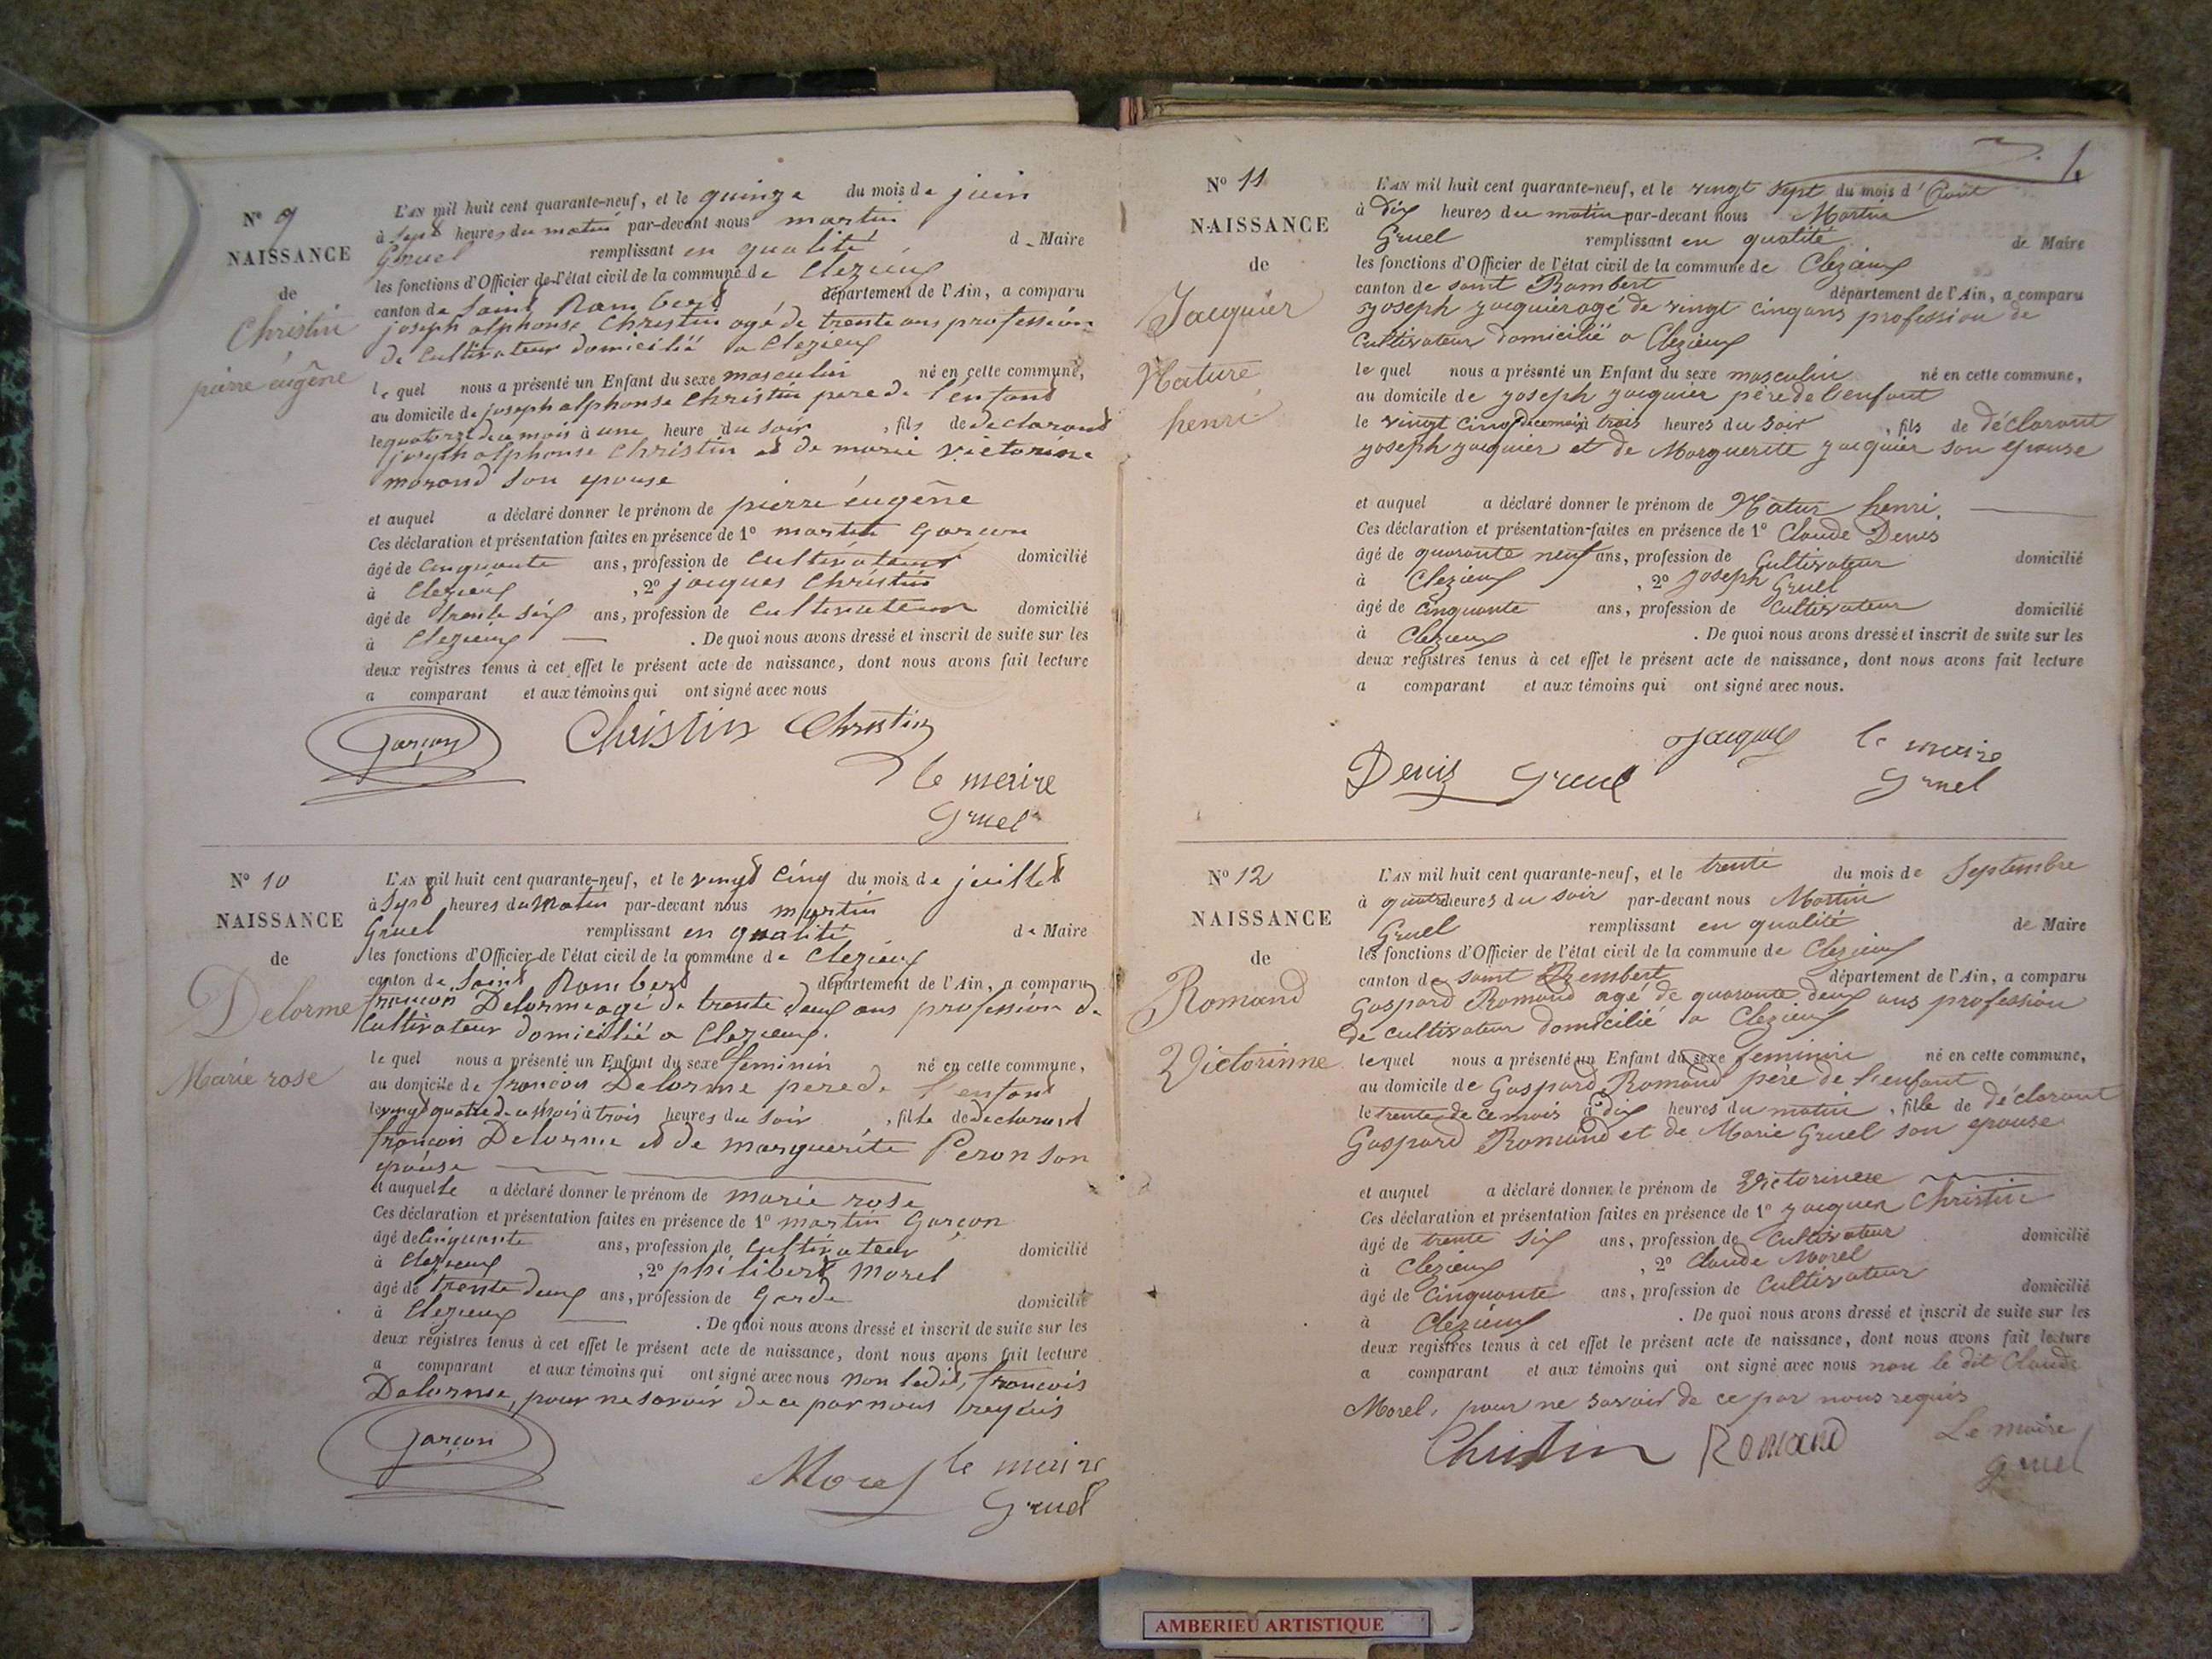 N° 9
NAISSANCE
de
Christin
pierre éugêne
L'AN mil huit cent quarante-neuf, et le quinze du mois de juin
à sept heures du matin par-devant nous martin
Gruel remplissant en qualité de Maire
les fonctions d'Officier de l'état civil de la commune de Clezieux
canton de Saint Rambert département de l'Ain, a comparu
joseph alphonse Christin agé de trente ans profession
de Cultivateur domicilié a Clezieux
le quel nous a présenté un Enfant du sexe masculin né en cette commune,
au domicile de joseph alphonse Christin pere de l'enfant
le quatorze de ce mois à une heure du soir, fils de declarant
joseph alphonse Christin et de marie victorine
morand son epouse
et auquel a déclaré donner le prénom de pierre éugêne
Ces déclaration et présentation faites en présence de 1° martin Garçon
âgé de Cinquante ans, profession de Cultivateur domicilié
à Clezieux, 2° jacques Christin
âgé de trente six ans, profession de Cultivateur domicilié
à Clezieux . De quoi nous avons dressé et inscrit de suite sur les
deux registres tenus à cet effet le présent acte de naissance, dont nous avons fait lecture
a comparant et aux témoins qui ont signé avec nous
Garçon Christin Christin
le maire
Gruel
N° 10
NAISSANCE
de
Delorme
Marie rose
L'AN mil huit cent quarante-neuf, et le vingt Cinq du mois de juillet
à Sept heures du Matin par-devant nous martin
Gruel remplissant en qualité de Maire
les fonctions d'Officier de l'état civil de la commune de Clezieux
canton de Saint Rambert département de l'Ain, a comparu
francois Delorme agé de trente deux ans profession de
Cultivateur domicilié a Clezieux.
le quel nous a présenté un Enfant du sexe feminin né en cette commune,
au domicile de francois Delorme pere de l'enfant
le vingt quatre de ce Mois à trois heures du soir, fille de declarant
francois Delorme et de marguerite Peron son
epouse
et auquelle a déclaré donner le prénom de marie rose
Ces déclaration et présentation faites en présence de 1° martin Garçon
âgé de Cinquante ans, profession de Cultivateur domicilié
à Clezieux, 2° philibert morel
âgé de trente deux ans, profession de Garde domicilié
à Clezieux . De quoi nous avons dressé et inscrit de suite sur les
deux registres tenus à cet effet le présent acte de naissance, dont nous avons fait lecture
a comparant et aux témoins qui ont signé avec nous non ledit, francois
Delorme, pour ne savoir de ce par nous requis
Garçon Morel le maire
Gruel
N° 11
NAISSANCE
de
Jacquier
Nature
henri
L'AN mil huit cent quarante-neuf, et le vingt sept du mois d'Août
à dix heures du matin par-devant nous Martin
Gruel remplissant en qualité de Maire
les fonctions d'Officier de l'état civil de la commune de Clezieux
canton de saint Rambert département de l'Ain, a comparu
joseph jacquier agé de vingt cinq ans profession de
Cultivateur domicilié a Clezieux
le quel nous a présenté un Enfant du sexe masculin né en cette commune,
au domicile de joseph jacquier père de l'enfant
le vingt cinq de ce mois à trois heures du soir, fils de déclarant
joseph jacquier et de Marguerite jacquier son epouse
et auquel a déclaré donner le prénom de Natur henri.
Ces déclaration et présentation faites en présence de 1° Claude Denis
âgé de quarante neuf ans, profession de Cultivateur domicilié
à Clezieux, 2° joseph Gruel
âgé de Cinquante ans, profession de Cultivateur domicilié
à Clezieux . De quoi nous avons dressé et inscrit de suite sur les
deux registres tenus à cet effet le présent acte de naissance, dont nous avons fait lecture
a comparant et aux témoins qui ont signé avec nous.
Denis Gruel le maire
Gruel
N° 12
NAISSANCE
de
Romand
Victorinne
L'AN mil huit cent quarante-neuf, et le trente du mois de Septembre
à quatre heures du soir par-devant nous Martin
Gruel remplissant en qualité de Maire
les fonctions d'Officier de l'état civil de la commune de Clezieux
canton de saint Rembert département de l'Ain, a comparu
Gaspard Romand agé de quarante deux ans profession
de cultivateur domicilié a Clezieux
le quel nous a présenté un Enfant du sexe feminin né en cette commune,
au domicile de Gaspard Romand père de l'enfant
le trente de ce mois à dix heures du matin, fille de déclarant
Gaspard Romand et de Marie Gruel son epouse
et auquel a déclaré donner le prénom de Victorinne
Ces déclaration et présentation faites en présence de 1° jacques Christin
âgé de trente six ans, profession de Cultivateur domicilié
à Clezieux, 2° Claude Morel
âgé de Cinquante ans, profession de Cultivateur domicilié
à Clézieux . De quoi nous avons dressé et inscrit de suite sur les
deux registres tenus à cet effet le présent acte de naissance, dont nous avons fait lecture
a comparant et aux témoins qui ont signé avec nous non le dit Claude
Morel, pour ne savoir de ce par nous requis
Christin Romand Le maire
gruel
AMBERIEU ARTISTIQUE